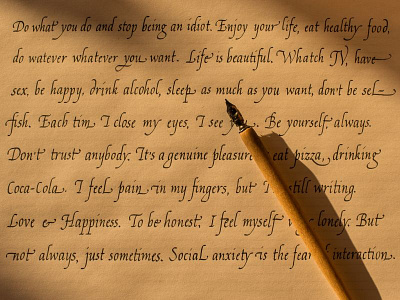 Do what you do and stop being an idiot. Enjoy your life, eat healthy food,
do watever whatever you want. Life is beautiful. Whatch TV, have
sex, be happy, drink alcohol, sleep as much as you want, don't be sel-
fish. Each tim I close my eyes, I see you. Be yourself, always.
Don't trust anybody. It's a genuine pleasure eat pizza, drinking
Coca-Cola. I feel pain in my fingers, but I still writing.
Love & Happiness. To be honest, I feel myself very lonely. But
not always, just sometimes. Social anxiety is the fear of interaction.